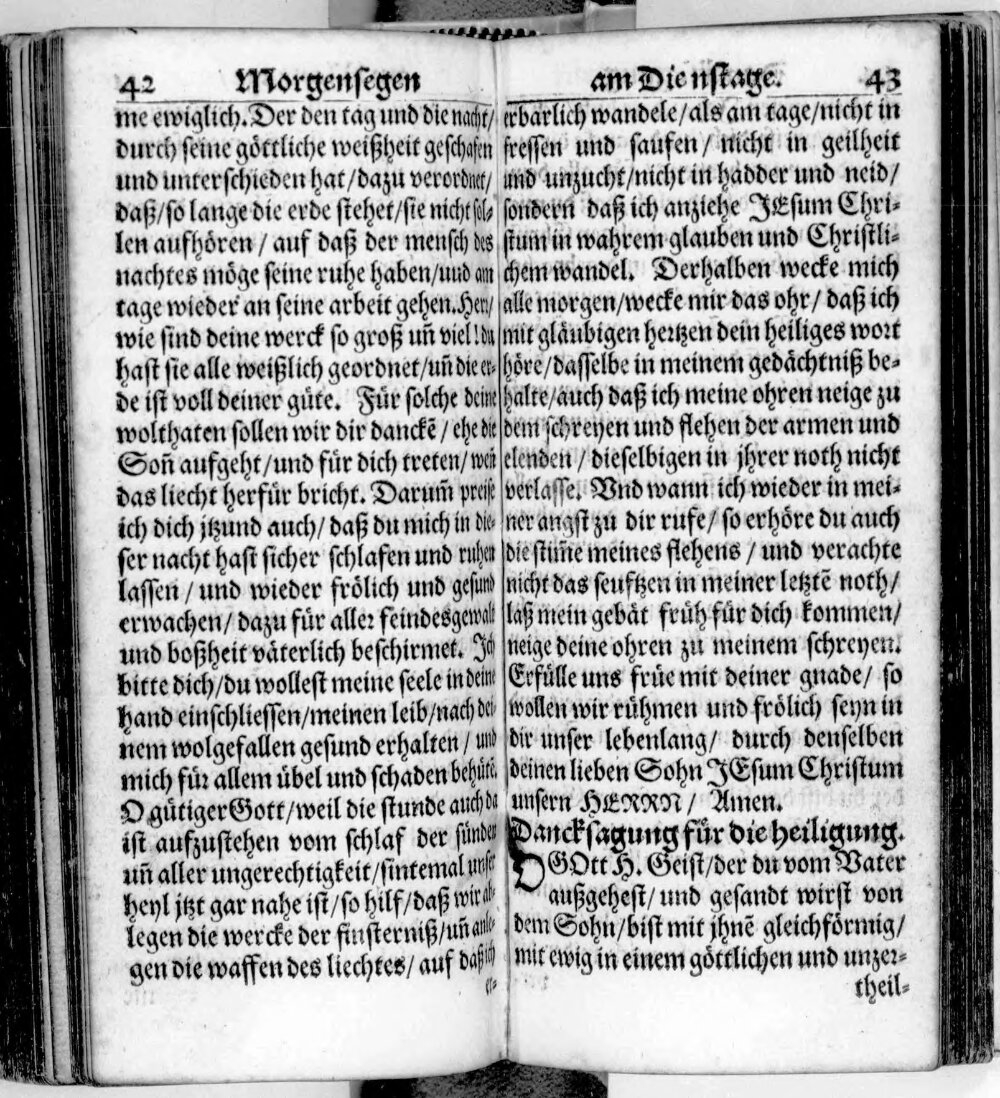 42 Morgensegen
me ewiglich. Der den tag und die nacht/
durch seine göttliche weißheit geschafen
und unterschieden hat/dazu verordnet/
daß/so lange die erde stehet/sie nicht sol-
len aufhören/ auf daß der mensch des
nachtes möge seine ruhe haben/und am
tage wieder an seine arbeit gehen. Herr/
wie sind deine werck so groß uñ viel! du
hast sie alle weißlich geordnet/uñ die er-
de ist voll deiner güte. Für solche deine
wolthaten sollen wir dir danckē/ ehe die
Soñ aufgeht/und für dich treten/ weñ
das liecht herfür bricht. Darum̃ preise
ich dich jtzund auch/ daß du mich in die-
ser nacht hast sicher schlafen und ruhen
lassen/ und wieder frölich und gesund
erwachen/ dazu für aller feindesgewalt
und boßheit väterlich beschirmet. Ich
bitte dich/du wollest meine seele in deine
hand einschliessen/meinen leib/nach dei-
nem wolgefallen gesund erhalten/ und
mich für allem übel und schaden behütē.
O gütiger Gott/weil die stunde auch da
ist aufzustehen vom schlaf der sünden
uñ aller ungerechtigkeit/sintemal unser
heyl jtzt gar nahe ist/so hilf/daß wir ab-
legen die wercke der finsterniß/uñ anle-
gen die waffen des liechtes/ auf daß ich
er-
am Dienstage. 43
erbarlich wandele/als am tage/nicht in
fressen und saufen/ nicht in geilheit
und unzucht/nicht in hadder und neid/
sondern daß ich anziehe JEsum Chri-
stum in wahrem glauben und Christli-
chem wandel. Derhalben wecke mich
alle morgen/wecke mir das ohr/ daß ich
mit gläubigen hertzen dein heiliges wort
höre/dasselbe in meinem gedächtniß be-
halte/auch daß ich meine ohren neige zu
dem schreyen und flehen der armen und
elenden/ dieselbigen in jhrer noth nicht
verlasse. Vnd wann ich wieder in mei-
ner angst zu dir rufe/ so erhöre du auch
die stim̃e meines flehens/ und verachte
nicht das seuftzen in meiner letztē noth/
laß mein gebät früh für dich kommen/
neige deine ohren zu meinem schreyen.
Erfülle uns früe mit deiner gnade/ so
wollen wir rühmen und frölich seyn in
dir unser lebenlang/ durch denselben
deinen lieben Sohn JEsum Christum
unsern HERRN/ Amen.
Dancksagung für die heiligung.
O GOtt H. Geist/der du vom Vater
außgehest/ und gesandt wirst von
dem Sohn/bist mit jhnē gleichförmig/
mit ewig in einem göttlichen und unzer-
theil-